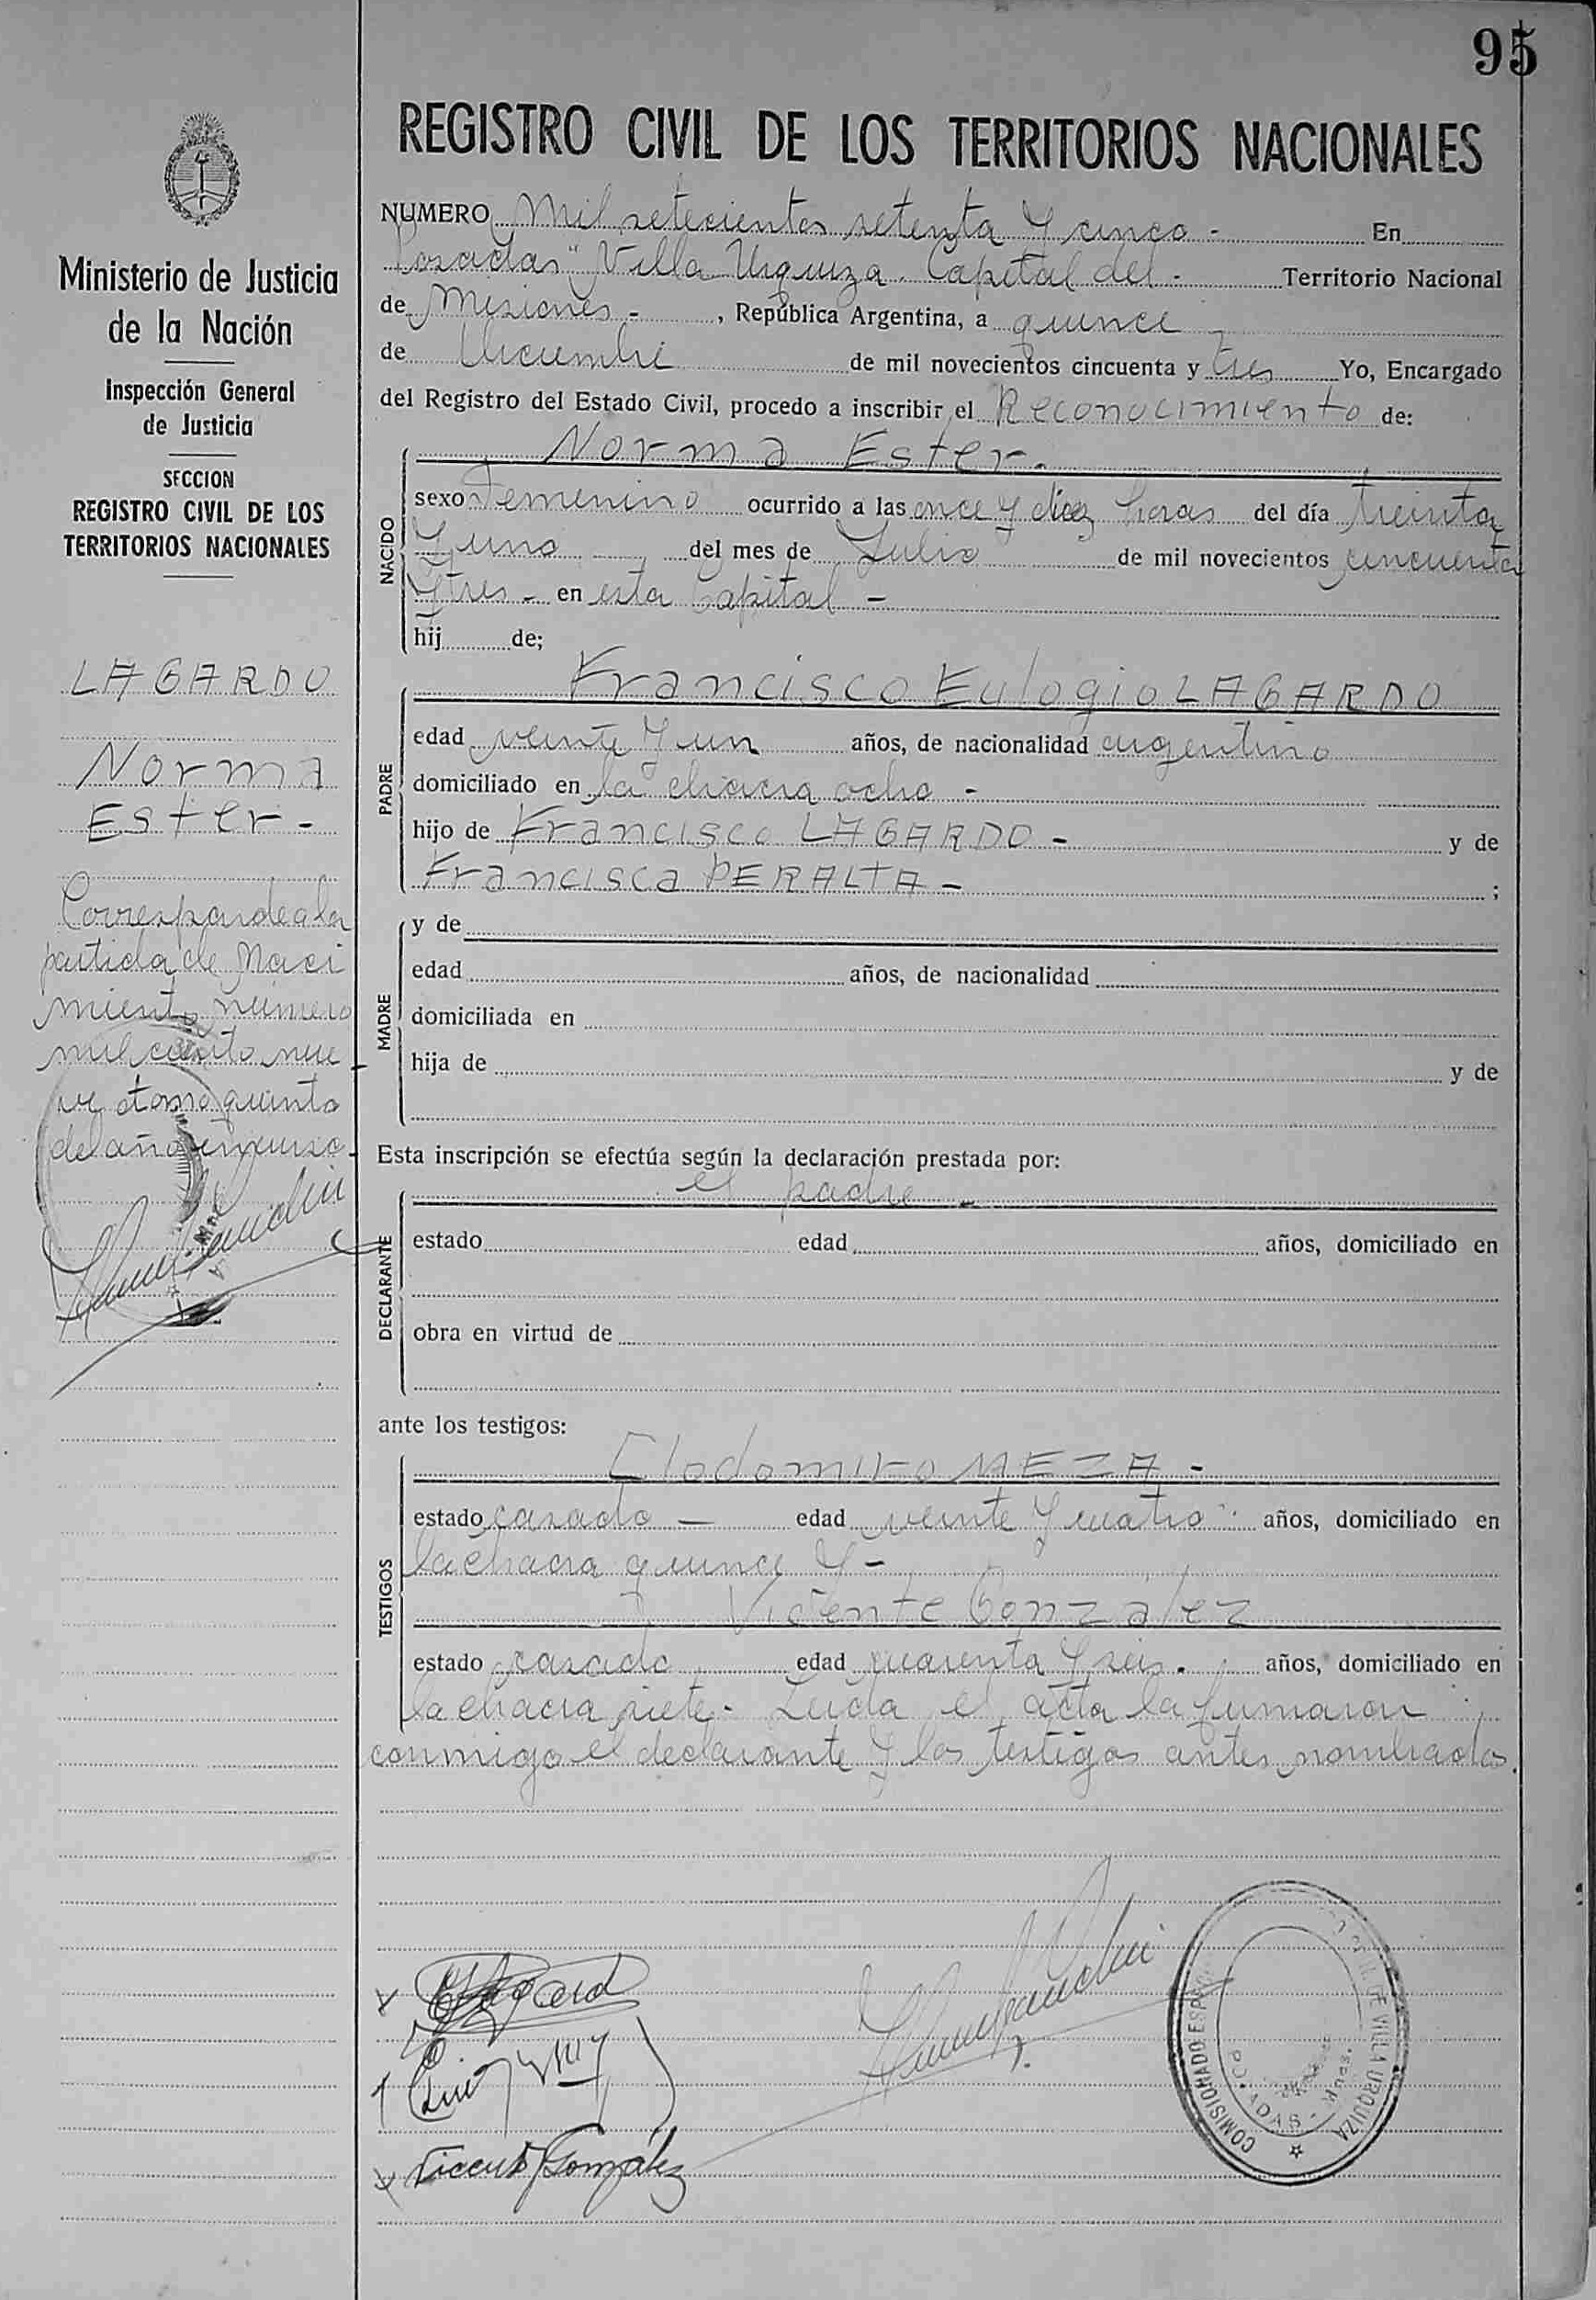 95
REGISTRO CIVIL DE LOS TERRITORIOS NACIONALES
Ministerio de Justicia
de la Nación
Inspección General
de Justicia
SECCION
REGISTRO CIVIL DE LOS
TERRITORIOS NACIONALES
LAGARDO
Norma
Ester -
Corresponde a la
partida de Naci
miento número
mil ciento nue
ve tomo quinto
del año en curso.
NUMERO Mil setecientos setenta y cinco - En
Posadas "Villa Urquiza. Capital del - Territorio Nacional
de Misiones - , República Argentina, a quince -
de Diciembre de mil novecientos cincuenta y tres Yo, Encargado
del Registro del Estado Civil, procedo a inscribir el Reconocimiento de:
NACIDO
Norma Ester.
sexo Femenino ocurrido a las once y diez horas del día treinta
y uno del mes de Julio de mil novecientos cincuenta
y tres - en esta Capital -
hij de;
PADRE
Francisco Eulogio LAGARDO
edad veinte y un años, de nacionalidad argentino
domiciliado en la chacra ocho -
hijo de Francisco LAGARDO - y de
Francisca PERALTA - ;
MADRE
y de
edad años, de nacionalidad
domiciliada en
hija de y de
Esta inscripción se efectúa según la declaración prestada por:
DECLARANTE
el padre -
estado edad años, domiciliado en
obra en virtud de
ante los testigos:
TESTIGOS
Clodomiro MEZA -
estado casado - edad veinte y cuatro años, domiciliado en
la chacra quince y -
Vicente González
estado casado edad cuarenta y seis. años, domiciliado en
la chacra siete - Leida el acta la firmaron
conmigo el declarante y los testigos antes nombrados.
Vicente González
COMISIONADO
DE VILLA URQUIZA